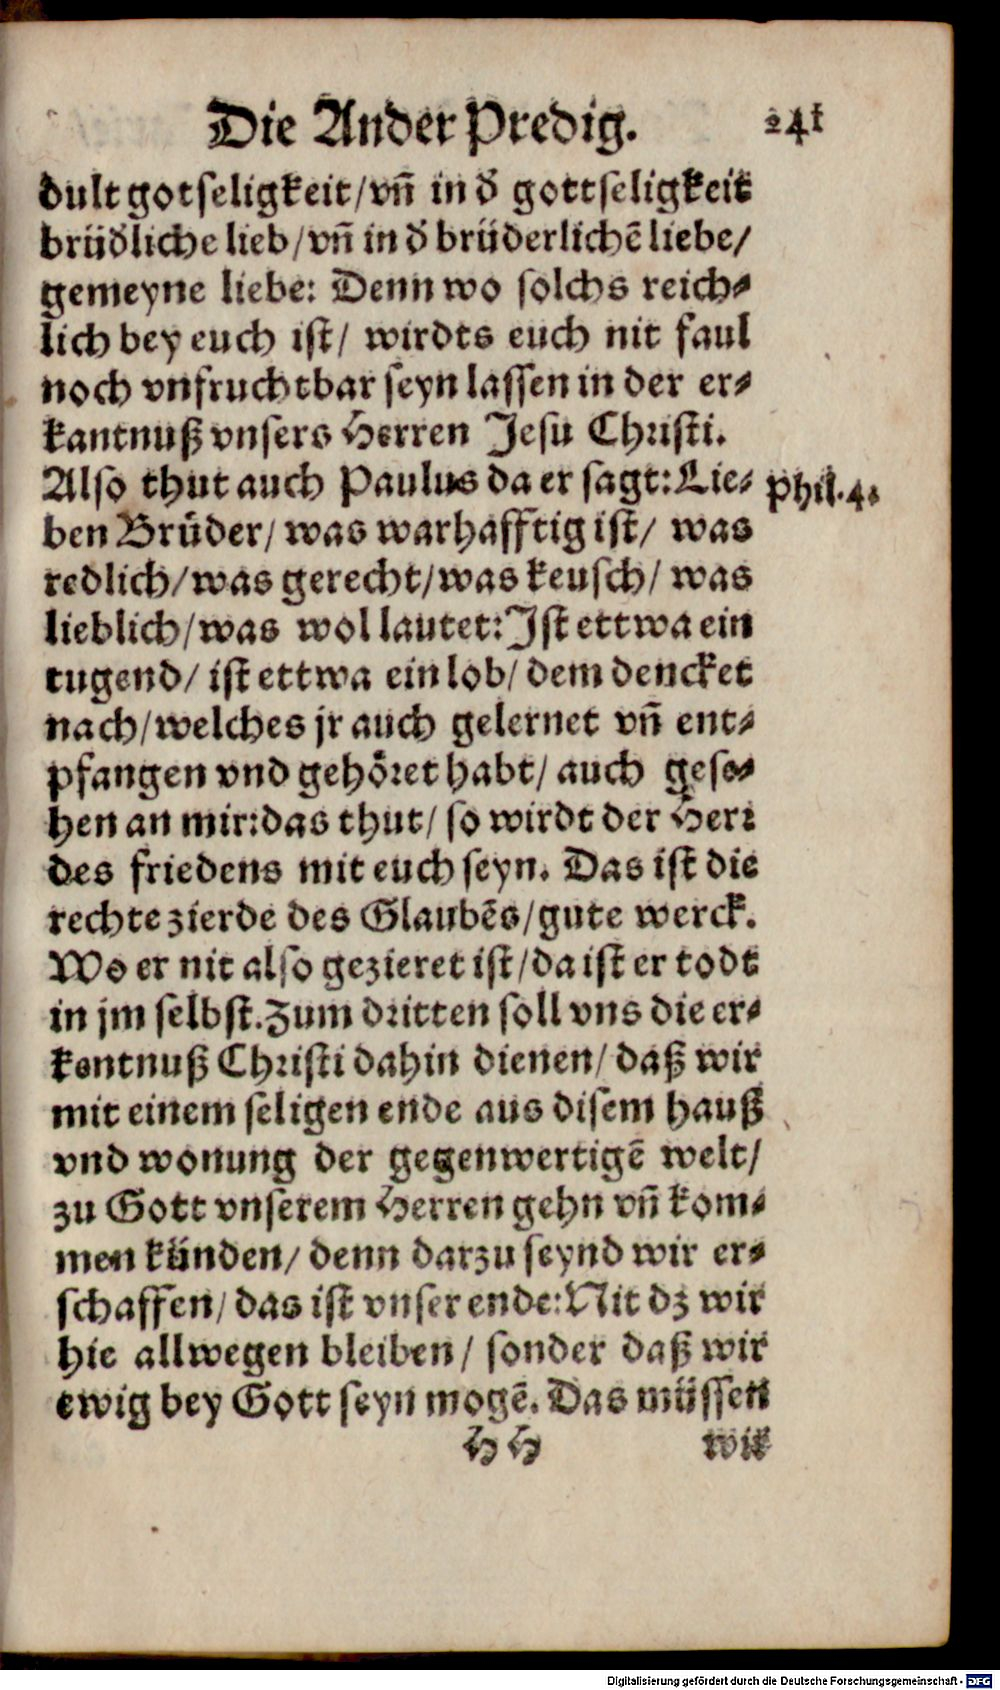 Die Ander Predig. 241
dult gotseligkeit/vñ in d̕ gottseligkeit
brüd̕liche lieb/vñ in d̕ brüderlichẽ liebe/
gemeyne liebe: Denn wo solchs reich-
lich bey euch ist/ wirdts euch nit faul
noch vnfruchtbar seyn lassen in der er-
kantnuß vnsers Herren Jesu Christi.
Also thut auch Paulus da er sagt: Lie- Phil. 4.
ben Brüder/ was warhafftig ist/ was
redlich/was gerecht/was keusch/ was
lieblich/was wol lautet: Ist ettwa ein
tugend/ ist ettwa ein lob/ dem dencket
nach/welches jr auch gelernet vñ ent-
pfangen vnd gehöret habt/ auch gese-
hen an mir: das thut/ so wirdt der Herr
des friedens mit euch seyn. Das ist die
rechte zierde des Glaubẽs/gute werck.
Wo er nit also gezieret ist/da ist er todt
in jm selbst. Zum dritten soll vns die er-
kentnuß Christi dahin dienen/ daß wir
mit einem seligen ende aus disem hauß
vnd wonung der gegenwertigẽ welt/
zu Gott vnserem Herren gehn vñ kom-
men künden/ denn darzu seynd wir er-
schaffen/ das ist vnser ende: Nit dz wir
hie allwegen bleiben/ sonder daß wir
ewig bey Gott seyn mogẽ. Das müssen
HH wir
Digitalisierung gefördert durch die Deutsche Forschungsgemeinschaft - DFG